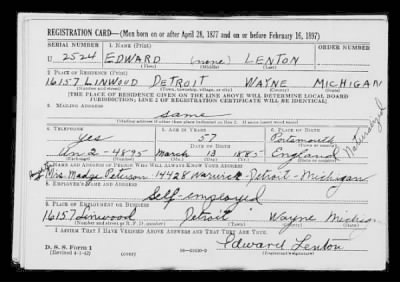 REGISTRATION CARD—(Men born on or after April 28, 1877 and on or before February 16, 1897)
SERIAL NUMBER 1. NAME (Print)
U 2524 EDWARD (none) LENTON
(First) (Middle) (Last)
2. PLACE OF RESIDENCE (Print)
16157 LINWOOD DETROIT WAYNE MICHIGAN
(Number and street) (Town, township, village, or city) (County) (State)
[THE PLACE OF RESIDENCE GIVEN ON THE LINE ABOVE WILL DETERMINE LOCAL BOARD
JURISDICTION; LINE 2 OF REGISTRATION CERTIFICATE WILL BE IDENTICAL]
3. MAILING ADDRESS
same
[Mailing address if other than place indicated on line 2. If same insert word same]
4. TELEPHONE 5. AGE IN YEARS 6. PLACE OF BIRTH
yes 57 Portsmouth
DATE OF BIRTH
Un 2-4895 March 13 1885 England
Naturalized
7. NAME AND ADDRESS OF PERSON WHO WILL ALWAYS KNOW YOUR ADDRESS
Mrs. Madge Paterson 14428 Warwick - Detroit - Michigan
8. EMPLOYER'S NAME AND ADDRESS
Self-employed
9. PLACE OF EMPLOYMENT OR BUSINESS
16157 Linwood Detroit Wayne Michigan
(Number and street or R. F. D. number) (Town) (County) (State)
I AFFIRM THAT I HAVE VERIFIED ABOVE ANSWERS AND THAT THEY ARE TRUE.
D. S. S. Form 1
(Revised 4-1-42) (over) Edward Lenton
(Registrant's signature)